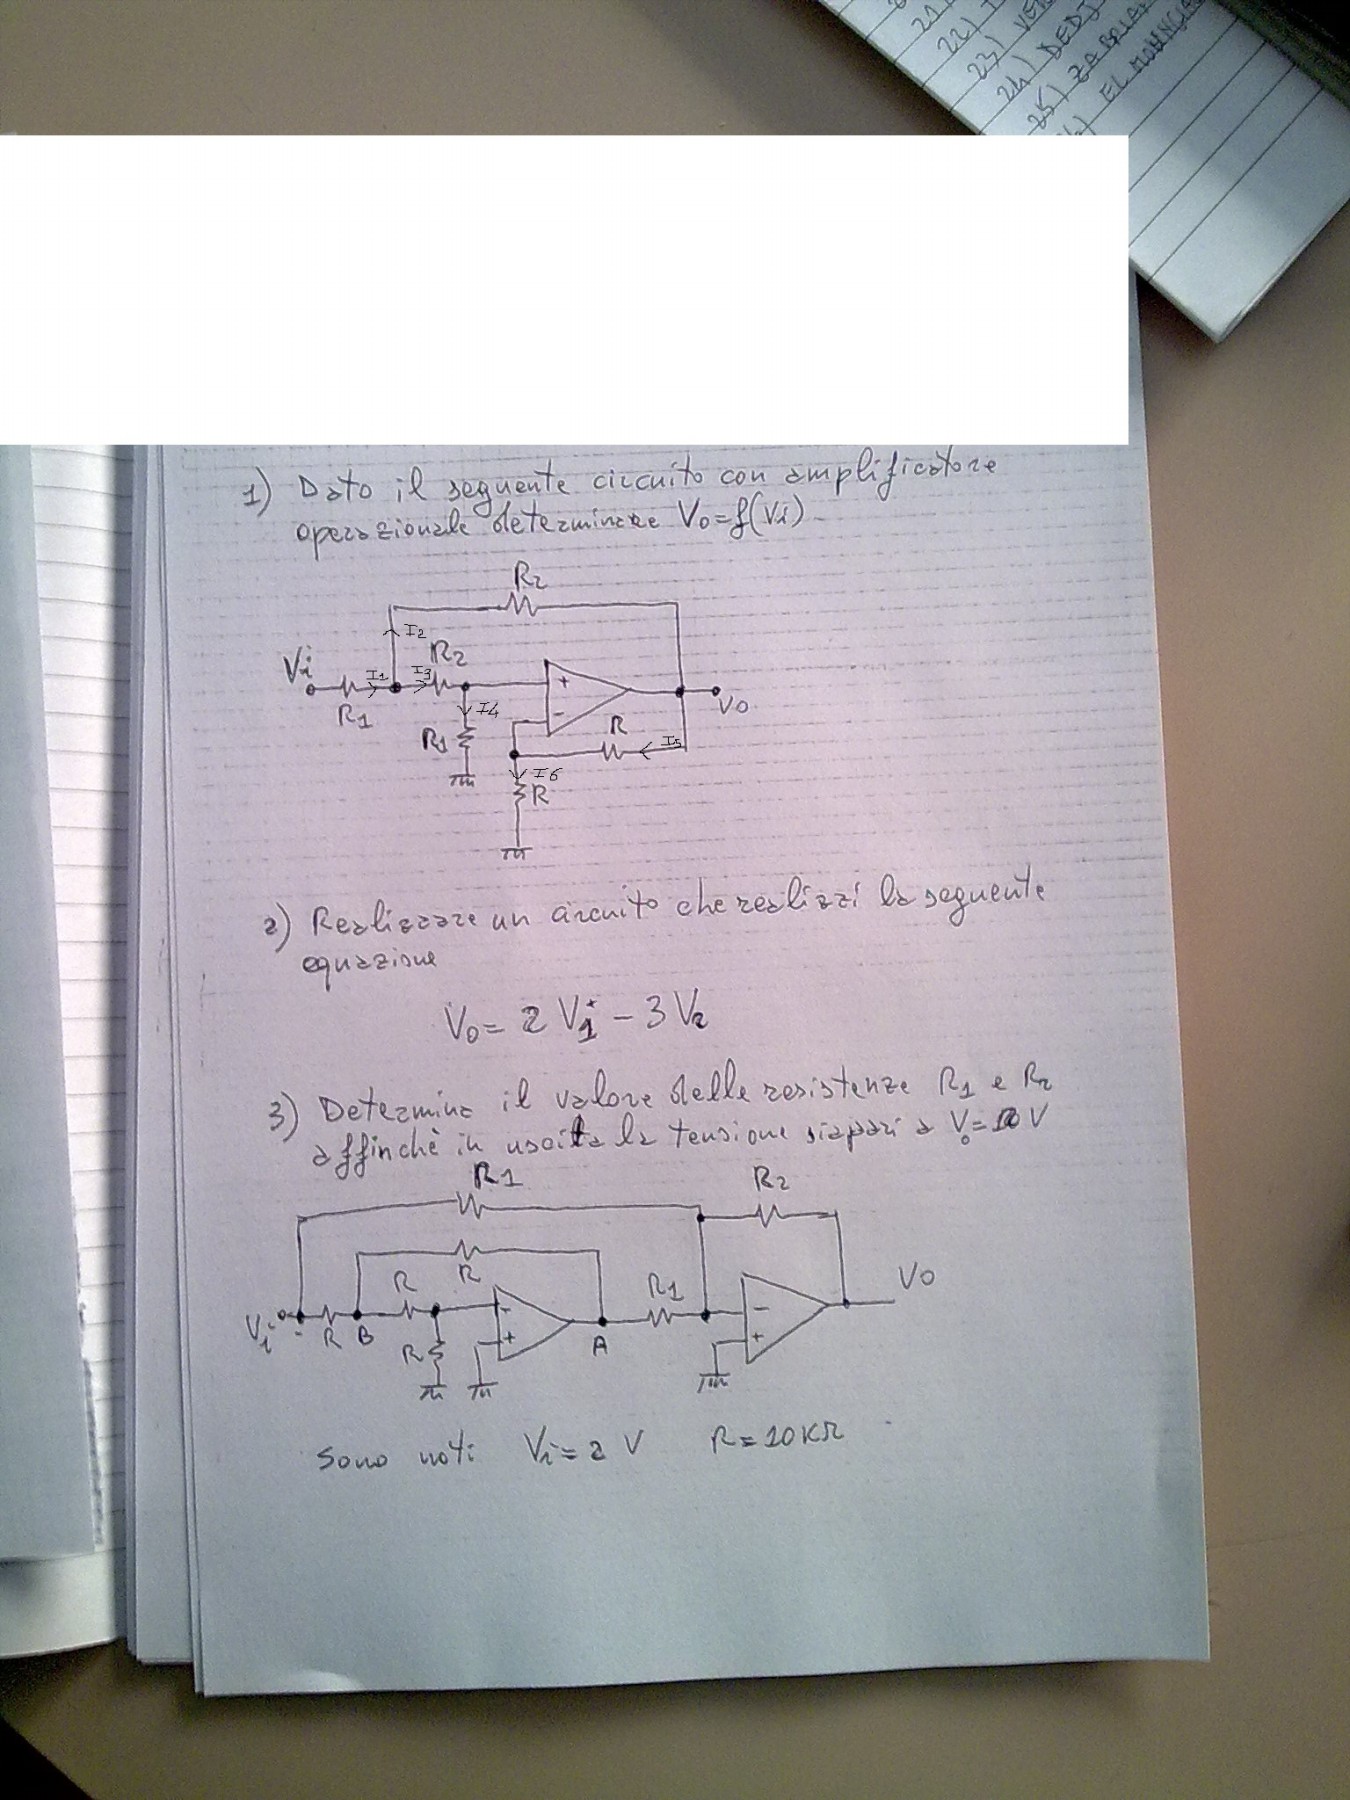 21)
22) I
23) VER
24) DEDJ
25) ZABRIA
EL MOUNCIA
1) Dato il seguente circuito con amplificatore
operazionale determinare Vo=f(Vi)
R2
I2
Vi
I1
I3
R2
+
Vo
R1
I4
R1
-
R
I5
I6
R
2) Realizzare un circuito che realizzi la seguente
equazione
Vo = 2 V1 - 3 V2
3) Determina il valore delle resistenze R1 e R2
affinchè in uscita la tensione sia pari a Vo= V
R1
R2
R
R
R1
Vo
Vi
R
B
-
+
R
A
-
+
Sono noti Vi = 2 V R = 10 KΩ